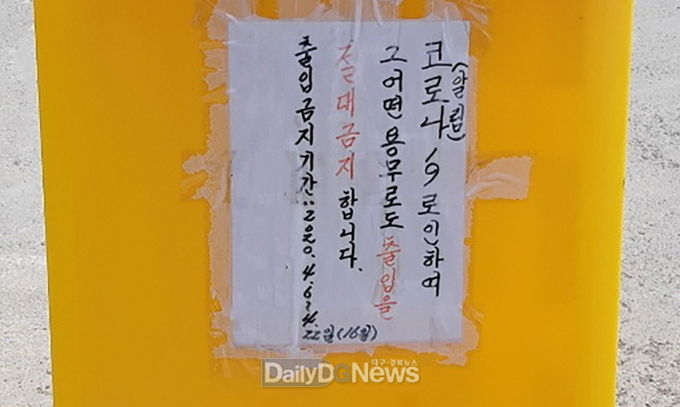 (알림)
코로나19로인하여
그 어떤 용무로도 출입을
절대금지합니다.
출입금지기간: 2020. 4. 6~4.
22일(16일)
대구·경북뉴스
DailyDGNews